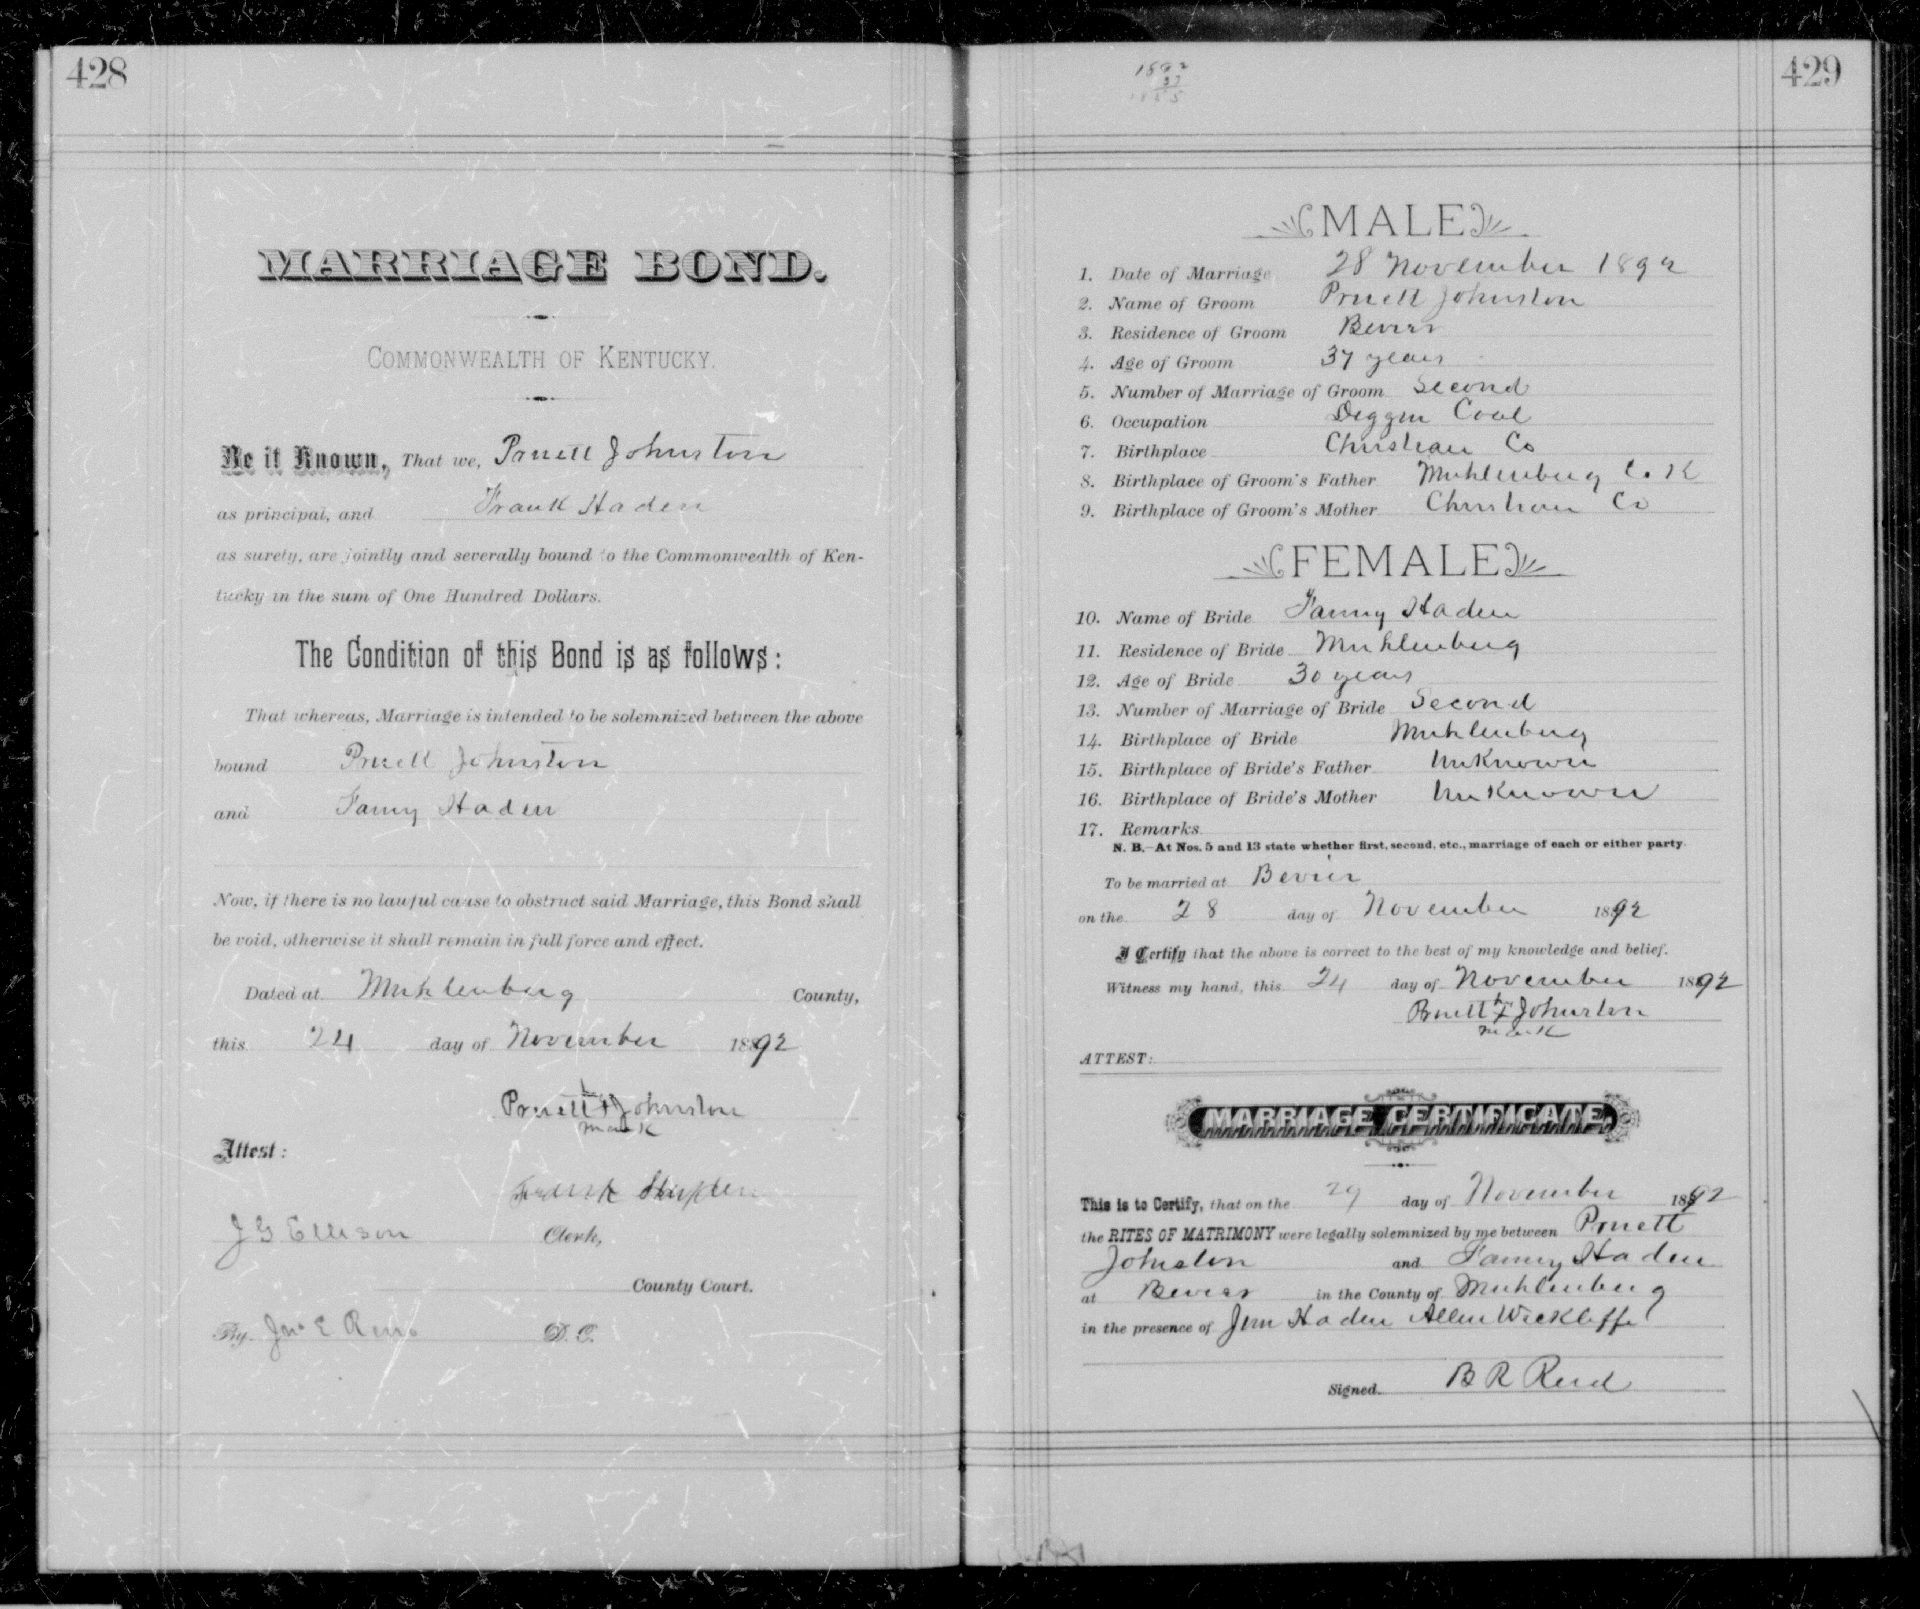 428
MARRIAGE BOND.
COMMONWEALTH OF KENTUCKY.
Be it Known, That we, Pruett Johnston
as principal, and Frank Haden
as surety, are jointly and severally bound to the Commonwealth of Ken-
tucky in the sum of One Hundred Dollars.
The Condition of this Bond is as follows:
That whereas, Marriage is intended to be solemnized between the above
bound Pruett Johnston
and Fanny Haden
Now, if there is no lawful cause to obstruct said Marriage, this Bond shall
be void, otherwise it shall remain in full force and effect.
Dated at Muhlenberg County,
this 24 day of November 1892
Pruett x Johnston
mark
Attest:
J G Ellison Clerk,
County Court.
By Jno E Reno D. C.
429
1892
37
1855
MALE
1. Date of Marriage 28 November 1892
2. Name of Groom Pruett Johnston
3. Residence of Groom Bevier
4. Age of Groom 37 years
5. Number of Marriage of Groom Second
6. Occupation Diggin Coal
7. Birthplace Christian Co
8. Birthplace of Groom's Father Muhlenberg Co K
9. Birthplace of Groom's Mother Christian Co
FEMALE
10. Name of Bride Fanny Haden
11. Residence of Bride Muhlenberg
12. Age of Bride 30 years
13. Number of Marriage of Bride Second
14. Birthplace of Bride Muhlenberg
15. Birthplace of Bride's Father Unknown
16. Birthplace of Bride's Mother Unknown
17. Remarks
N. B.—At Nos. 5 and 13 state whether first, second, etc., marriage of each or either party.
To be married at Bevier
on the 28 day of November 1892
I Certify that the above is correct to the best of my knowledge and belief.
Witness my hand, this 24 day of November 1892
Pruett x Johnston
mark
ATTEST:
MARRIAGE CERTIFICATE.
This is to Certify, that on the 29 day of November 1892
the RITES OF MATRIMONY were legally solemnized by me between Pruett
Johnston and Fanny Haden
at Bevier in the County of Muhlenberg
in the presence of Jim Haden Allen Wickliffe
Signed. B R Reid